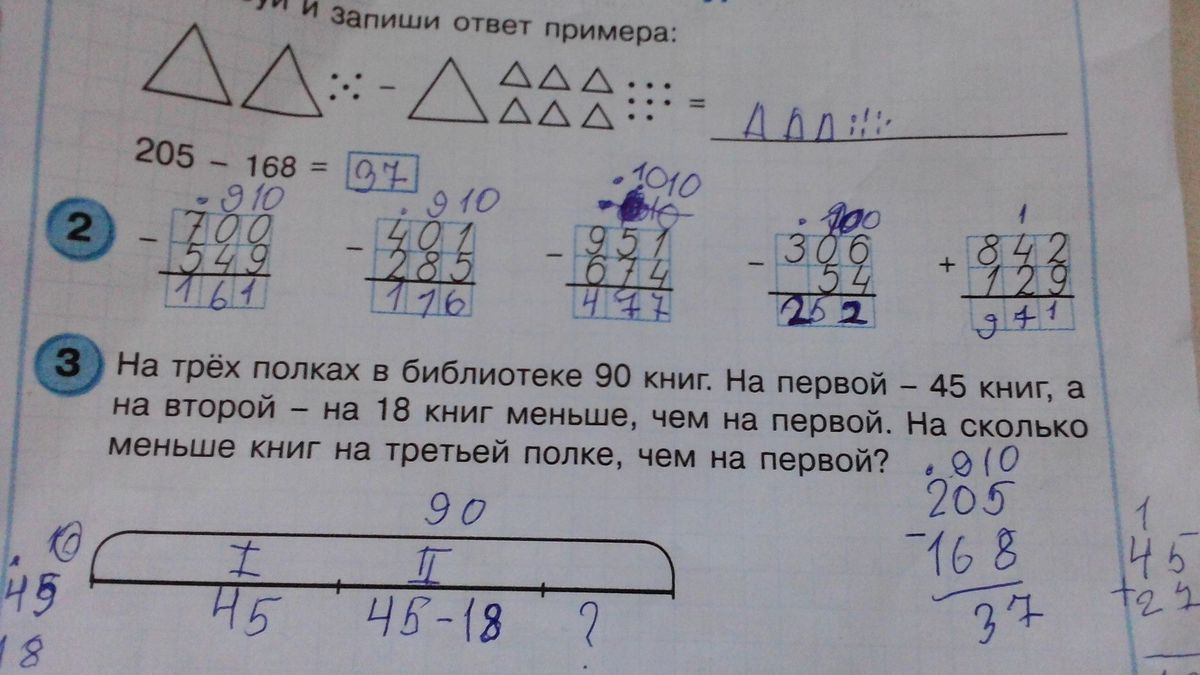 и запиши ответ примера:
– =
205 – 168 = 37
. 9 10
. 9 10
. 10 10
1
2
– 700
549
161
– 401
285
116
– 951
674
477
– 306
54
252
+ 842
129
971
3
На трёх полках в библиотеке 90 книг. На первой – 45 книг, а
на второй – на 18 книг меньше, чем на первой. На сколько
меньше книг на третьей полке, чем на первой?
90
I II
45 45-18 ?
. 10
45
18
. 9 10
205
- 168
37
1
45
+ 27